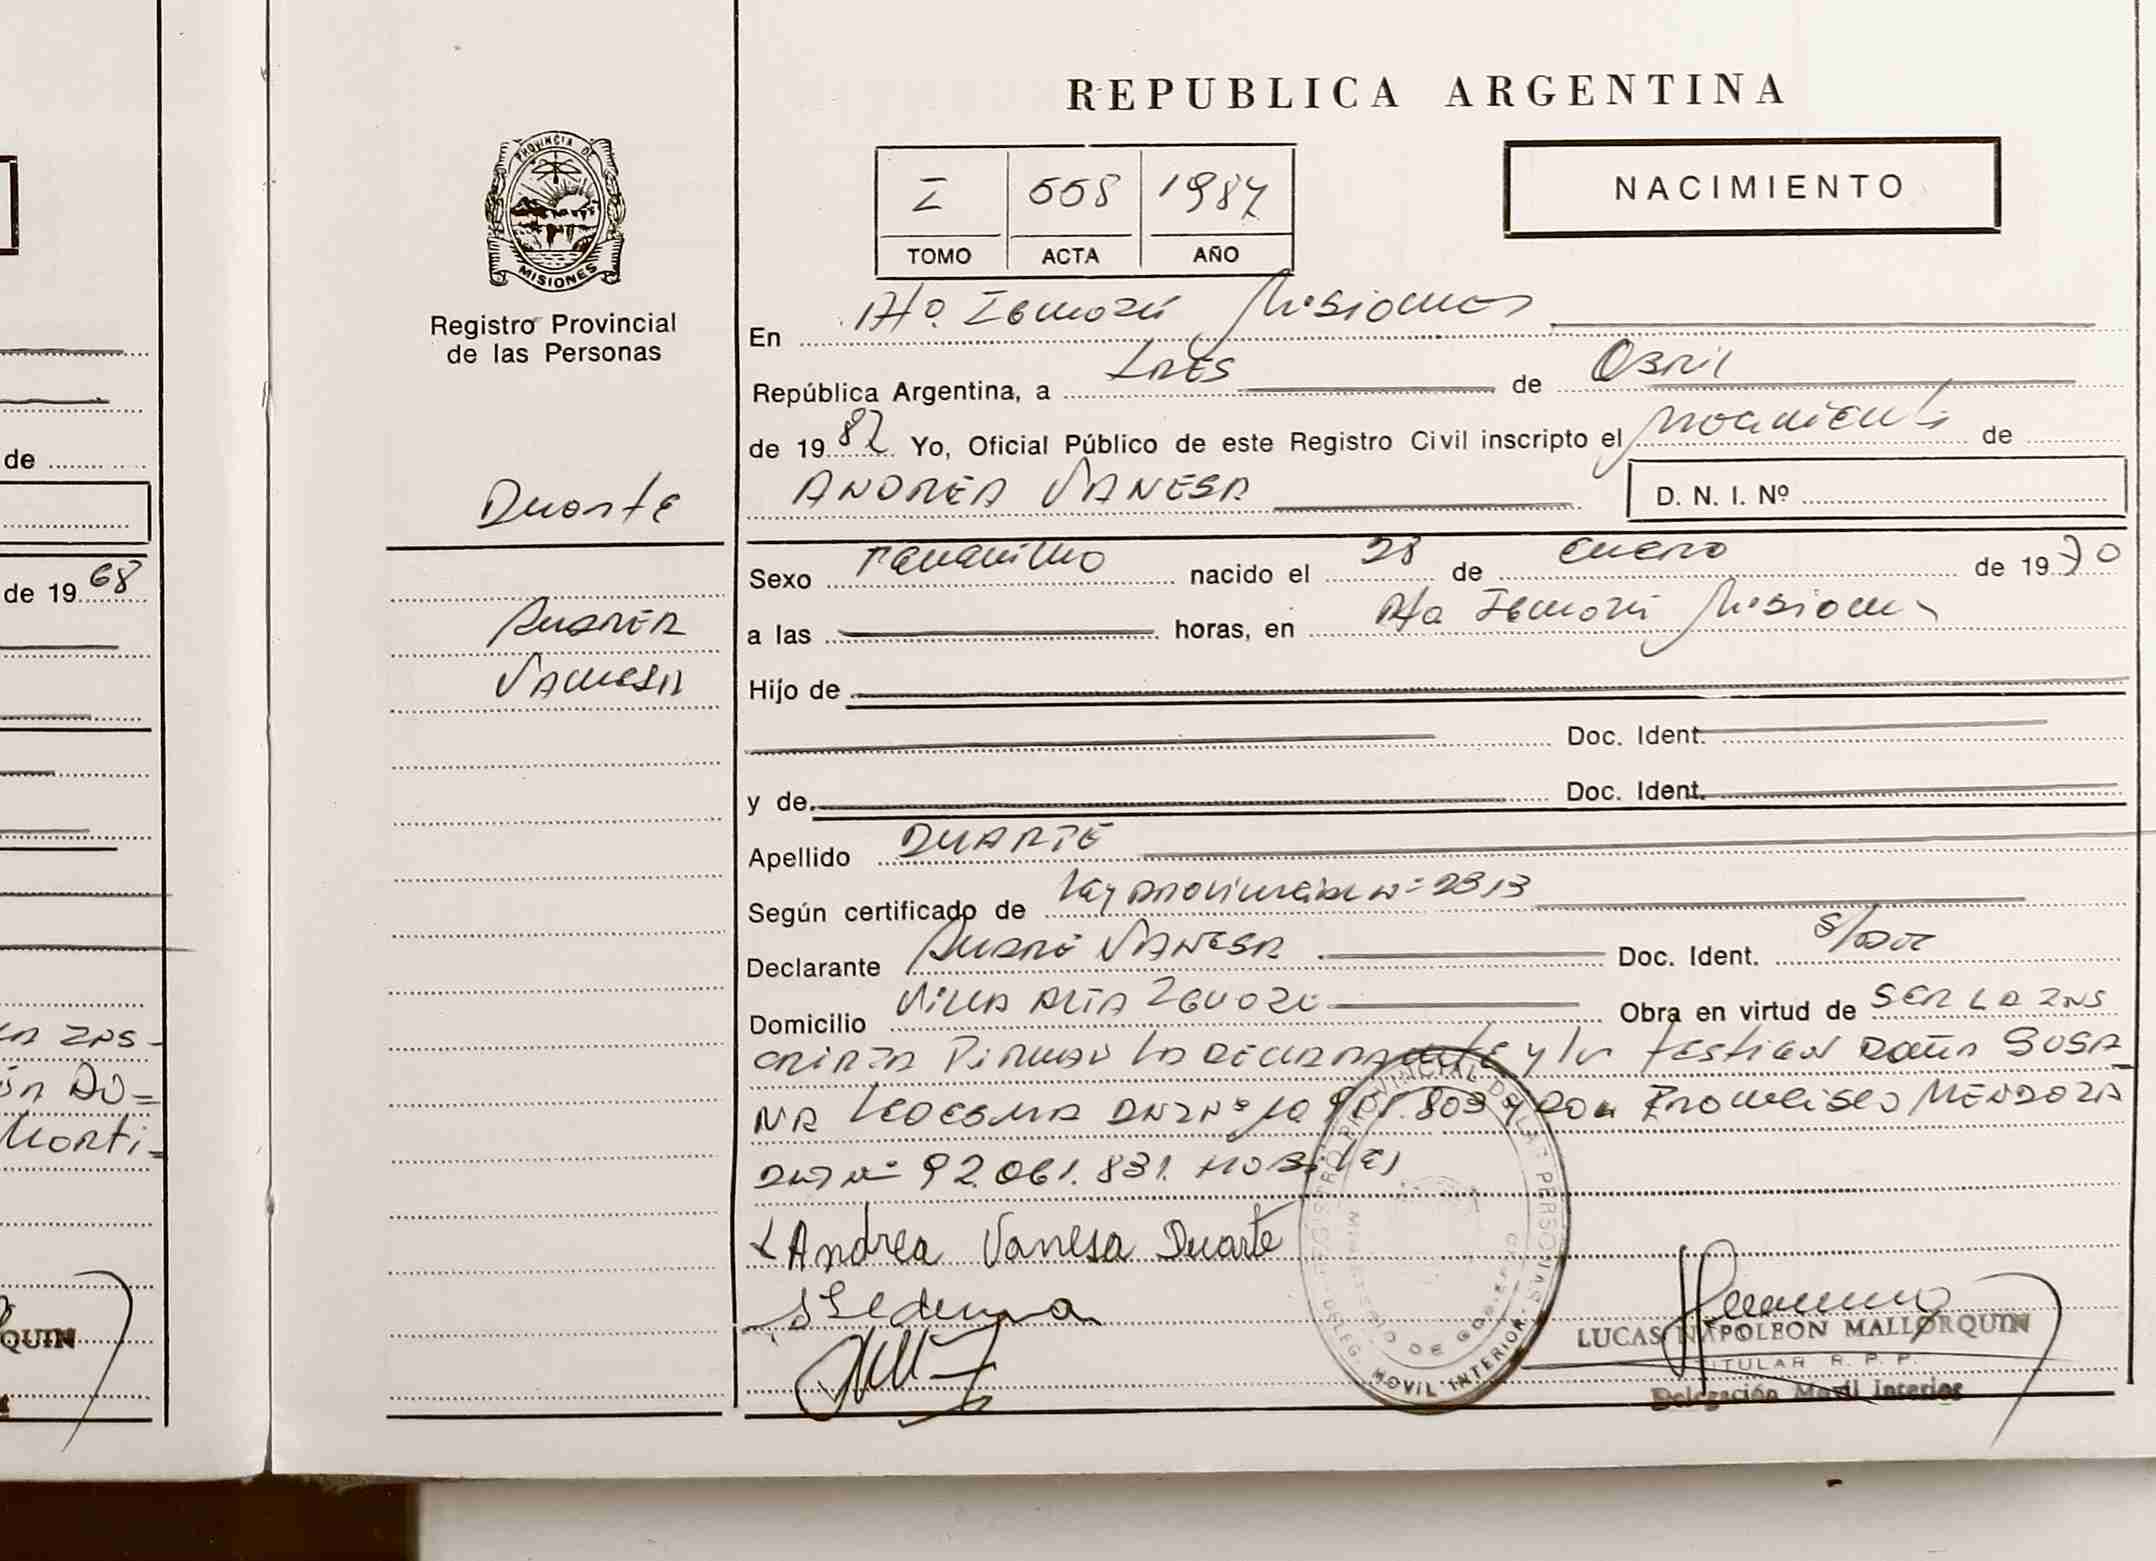 REPUBLICA ARGENTINA
I 558 1987
TOMO ACTA AÑO
NACIMIENTO
PROVINCIA DE
MISIONES
Registro Provincial
de las Personas
En Pto. Iguazú Misiones
República Argentina, a tres de Abril
de 1987 Yo, Oficial Público de este Registro Civil inscripto el Nacimiento de
ANDREA VANESA D. N. I. Nº
Duarte
Sexo Femenino nacido el 28 de enero de 1970
a las horas, en Pto Iguazú Misiones
Andrea
Vanesa
Hijo de
Doc. Ident.
y de Doc. Ident.
Apellido DUARTE
Según certificado de Ley provincial Nº 2313
Declarante Andrea VANESA Doc. Ident. S/
Domicilio Villa ALTA IGUAZU Obra en virtud de SER LA INS
CRIPTA Firman LA DECLARANTE y los testigos Doña SUSA
NA LEDESMA DNI Nº 803 y Don MENDOZA
DNI Nº 92.061.831. HABILES
Andrea Vanesa Duarte
SLedesma
REGISTRO PROVINCIAL DE LAS PERSONAS
MINISTERIO DE GOBIERNO
DELEG. MOVIL INTERIOR
LUCAS NAPOLEON MALLORQUIN
TITULAR R. P. P.
Delegación Movil Interior
de
de 1968
LA INS-
DO=
Morti-
QUIN